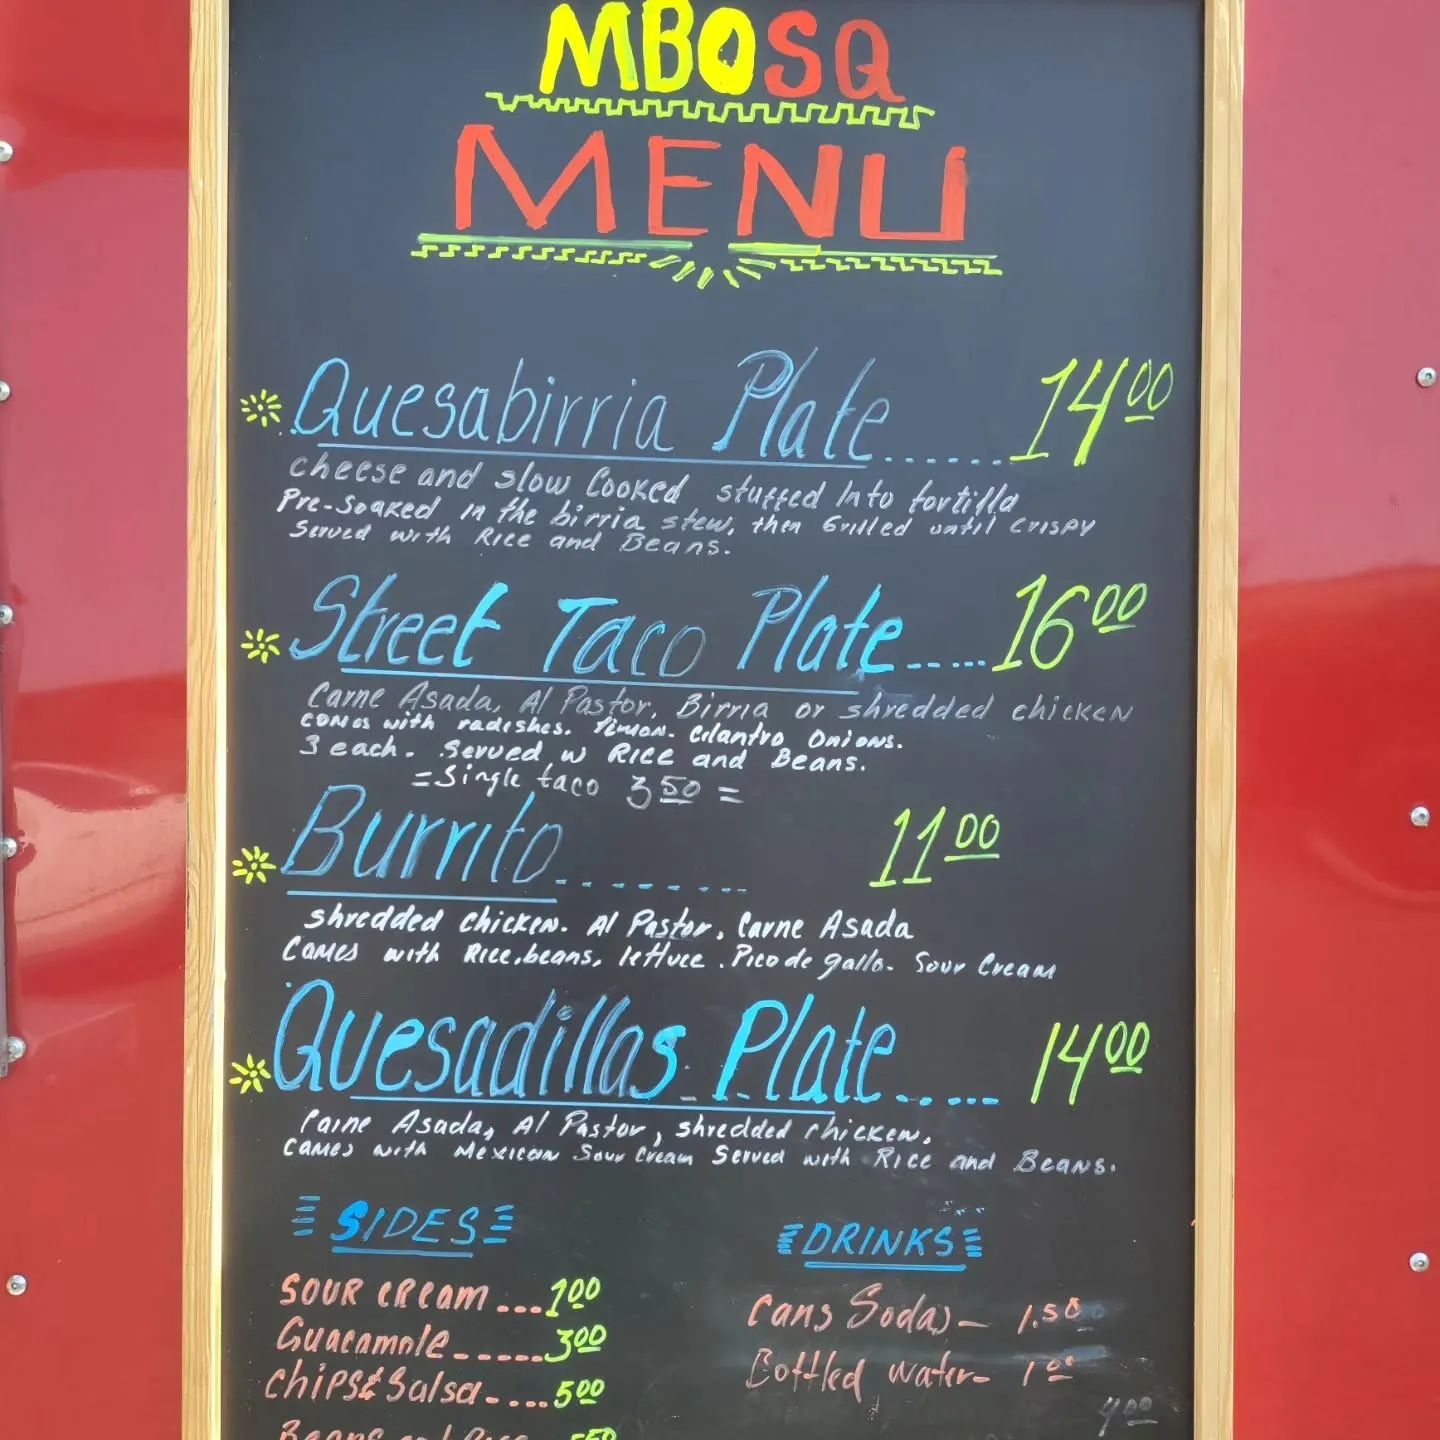 MBOSQ
MENU
Quesabirria Plate....... 14.00
cheese and slow Cooked stuffed Into tortilla
Pre-Soaked in the birria stew, then Grilled until crispy
Served with Rice and Beans.
Street Taco Plate..... 16.00
Carne Asada, Al Pastor, Birria or shredded chicken
comes with radishes. limon. Cilantro Onions.
3 each. Served w Rice and Beans.
=Single taco 3.50=
Burrito........ 11.00
shredded chicken. Al Pastor, Carne Asada
Comes with Rice, beans, lettuce. Pico de gallo. Sour Cream
Quesadillas Plate..... 14.00
Carne Asada, Al Pastor, shredded chicken.
comes with Mexican Sour Cream Served with Rice and Beans.
SIDES
Sour cream....1.00
Guacamole......3.00
Chips & Salsa....5.00
Beans and Rice
DRINKS
Cans Sodas- 1.50
Bottled water- 1.00
4.00